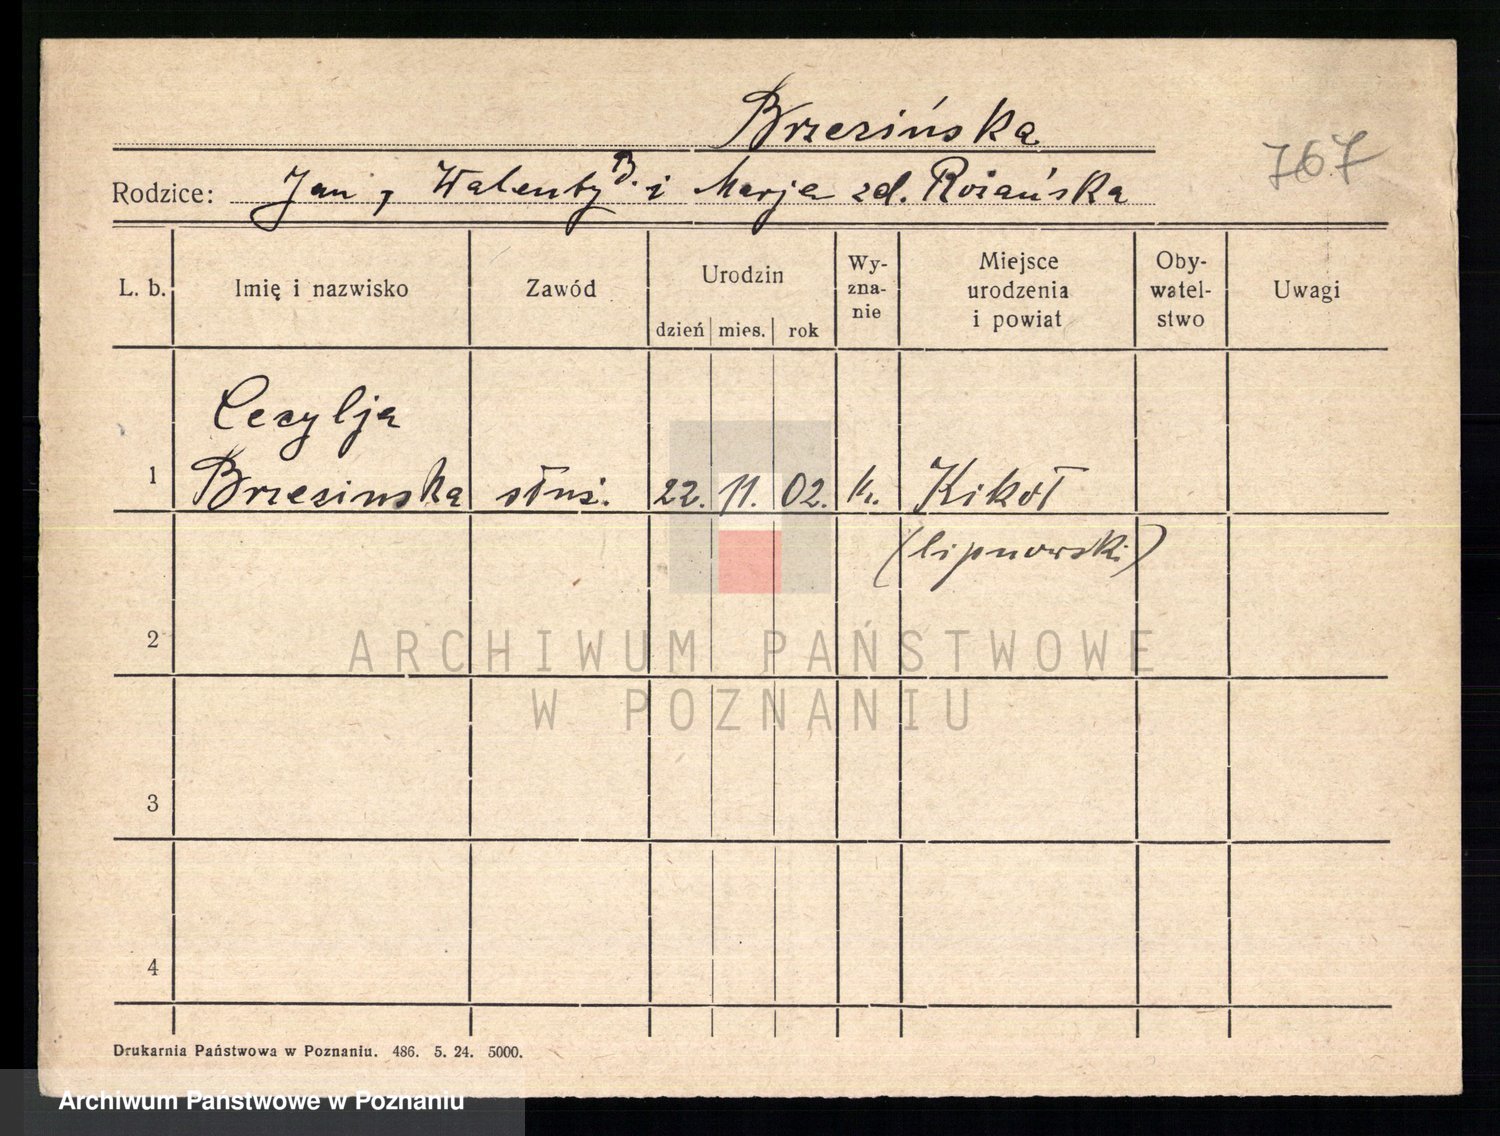 Brzezińska
767
Rodzice: Jan, Walenty B. i Marja zd. Rożańska
L. b. Imię i nazwisko Zawód Urodzin Wy-zna-nie Miejsce urodzenia i powiat Oby-watel-stwo Uwagi
dzień mies. rok
Cezylja
1 Brzezinska służ. 22. 11. 02. k. Kikoł
(lipnowski)
2
ARCHIWUM PAŃSTWOWE
W POZNANIU
3
4
Drukarnia Państwowa w Poznaniu. 486. 5. 24. 5000.
Archiwum Państwowe w Poznaniu